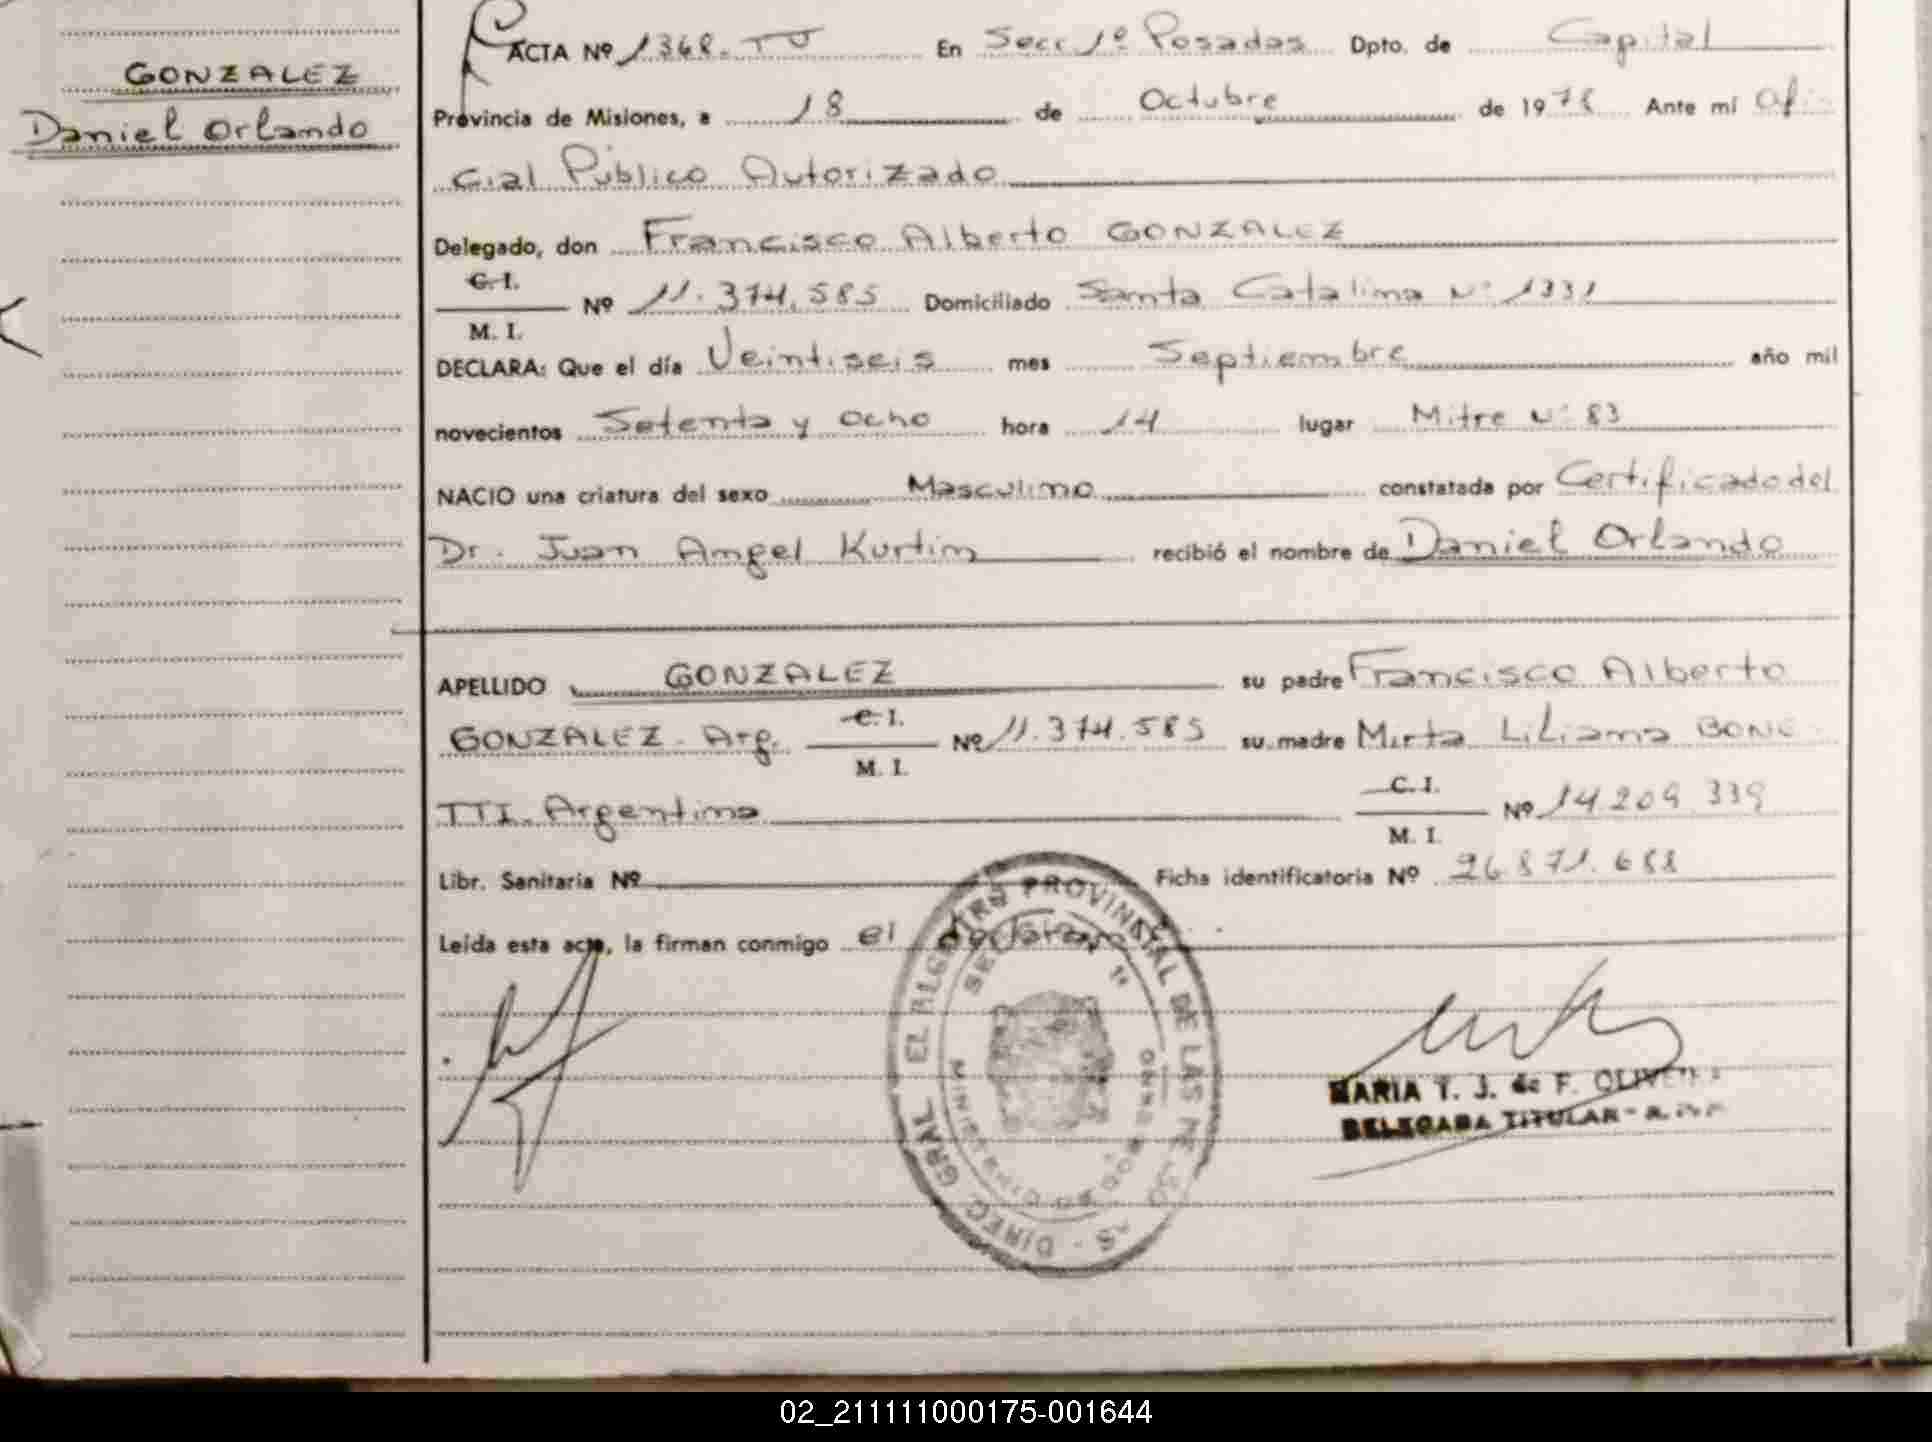 GONZALEZ
Daniel Orlando
ACTA Nº 1368. TU En Secc 1º Posadas Dpto. de Capital
Provincia de Misiones, a 18 de Octubre de 1978 Ante mí Ofi-
cial Público Autorizado
Delegado, don Francisco Alberto GONZALEZ
C. I.
Nº 11.374.585 Domiciliado Santa Catalina Nº 1331
M. I.
DECLARA: Que el día Veintiseis mes Septiembre año mil
novecientos Setenta y Ocho hora 14 lugar Mitre Nº 83
NACIO una criatura del sexo Masculino constatada por Certificado del
Dr. Juan Angel Kurtin recibió el nombre de Daniel Orlando
APELLIDO GONZALEZ su padre Francisco Alberto
C. I.
GONZALEZ - Arg. Nº 11.374.585 su madre Mirta Liliana BONE-
M. I.
C. I.
TTI. Argentina Nº 14.209.339
M. I.
Libr. Sanitaria Nº Ficha identificatoria Nº 26.871.688
Leída esta acta, la firman conmigo el declarante
DIREC. GRAL. EL REGISTRO PROVINCIAL DE LAS PERSONAS
MINISTERIO DE GOBIERNO
MARIA T. J. de F. OLIVEIRA
DELEGADA TITULAR - R.P.P.
02_211111000175-001644